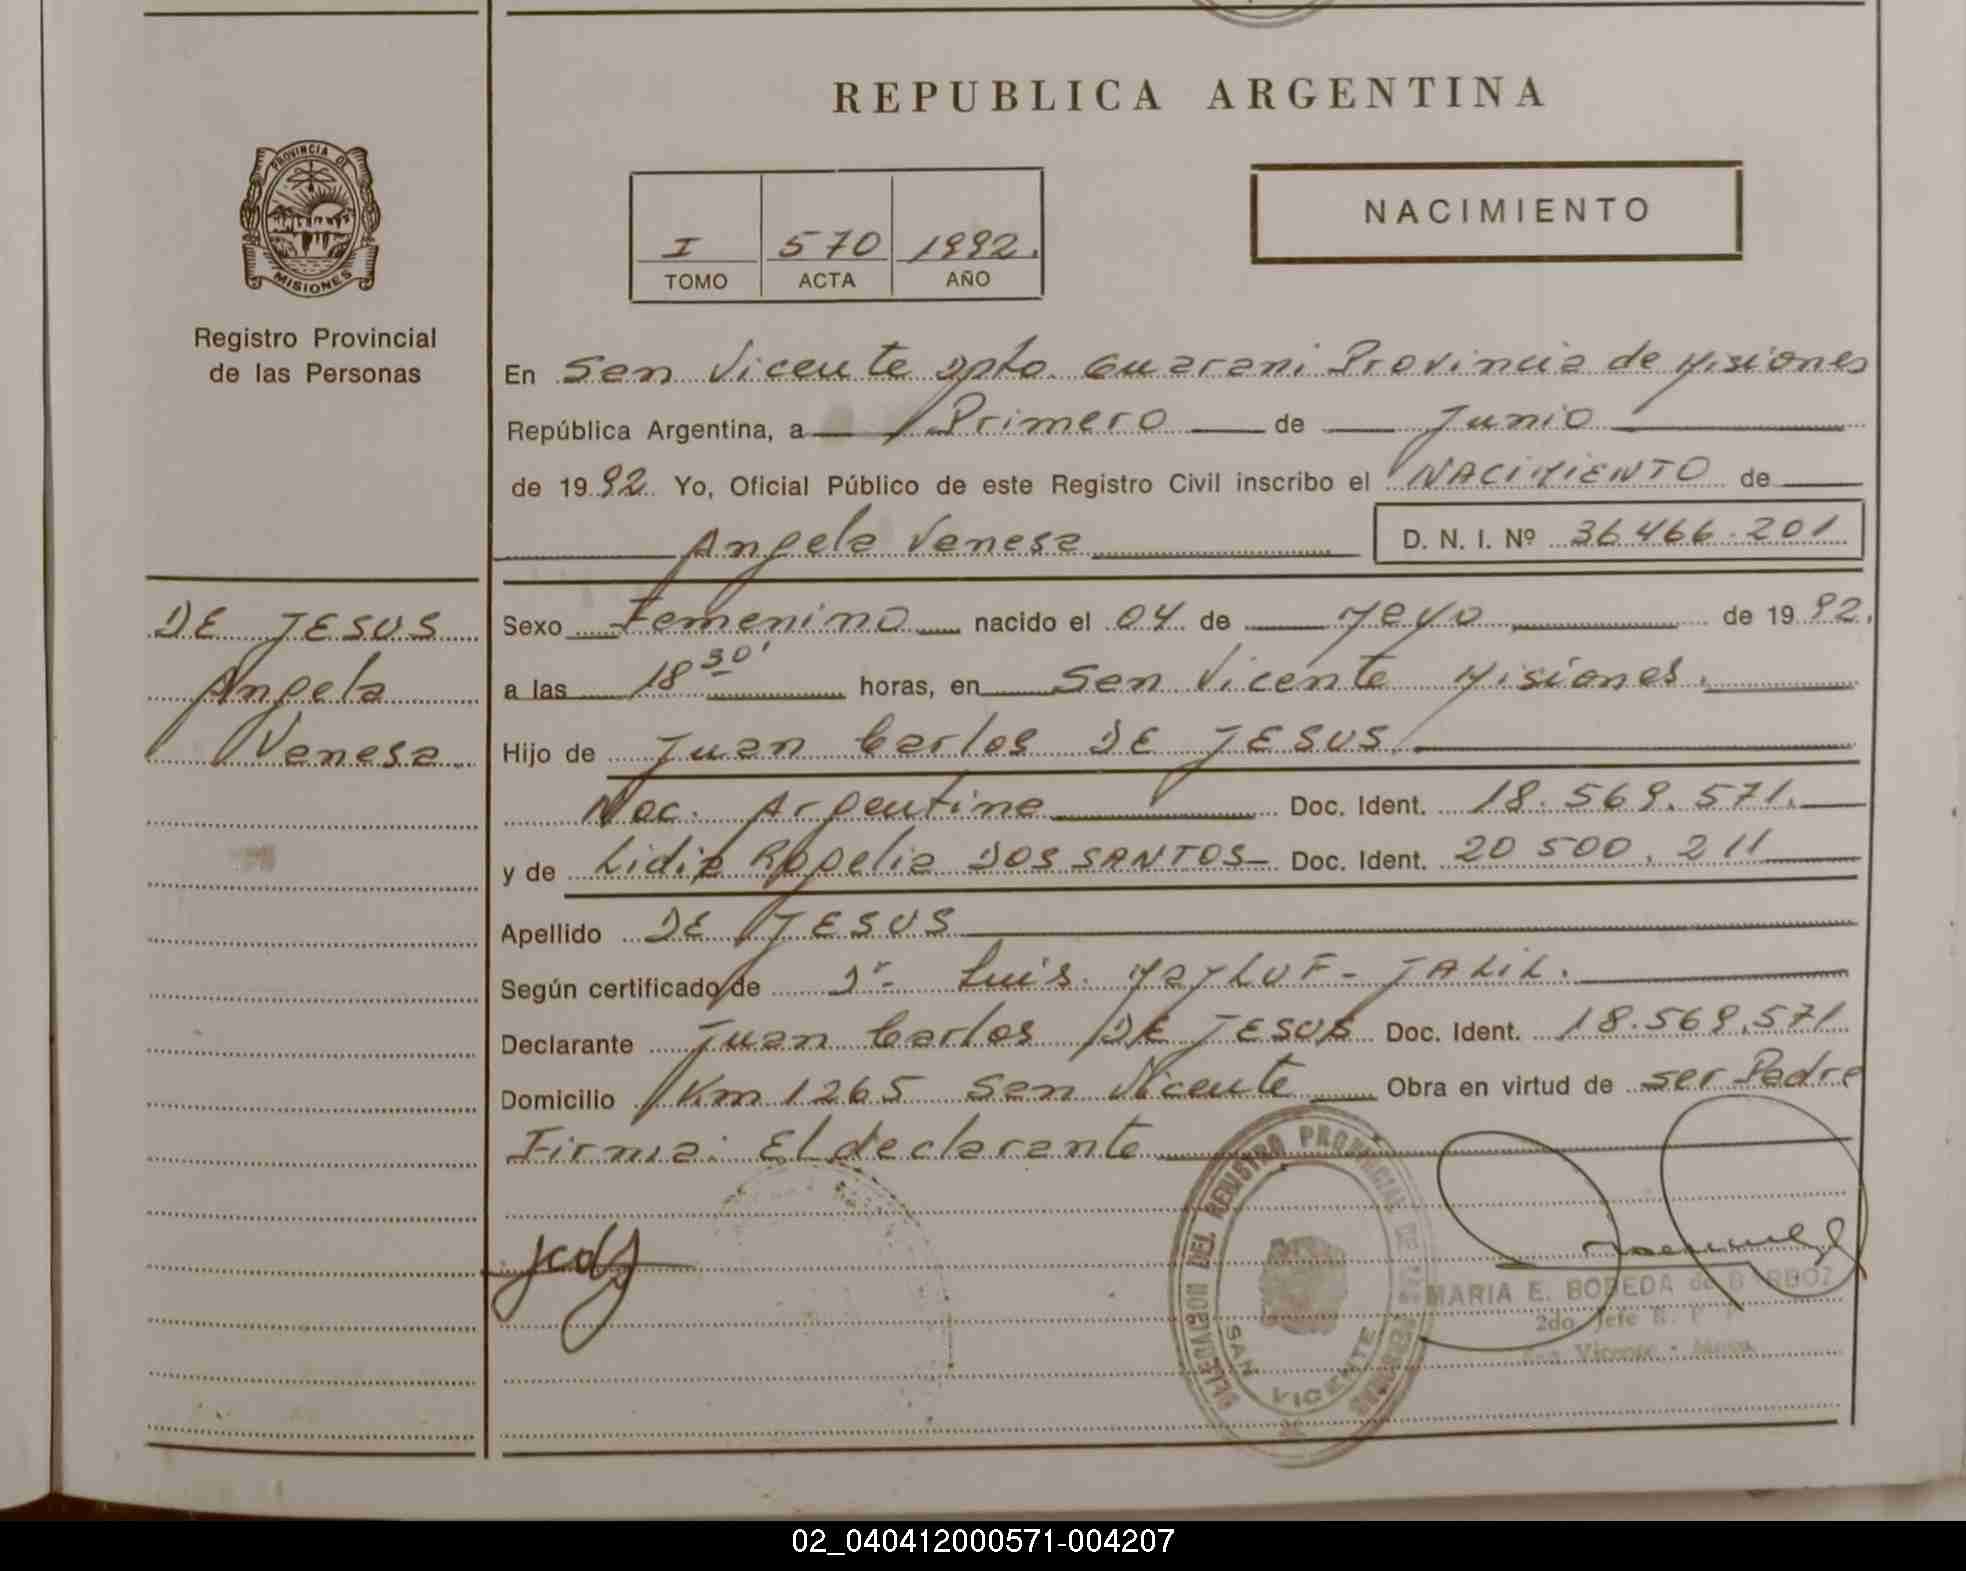 REPUBLICA ARGENTINA
PROVINCIA DE
MISIONES
Registro Provincial
de las Personas
I 570 1992.
TOMO ACTA AÑO
NACIMIENTO
En San Vicente Dpto. Guarani Provincia de Misiones
República Argentina, a Primero de Junio
de 1992 Yo, Oficial Público de este Registro Civil inscribo el NACIMIENTO de
Angela Vanesa D. N. I. Nº 36.466.201
DE JESUS
Angela
Vanesa
Sexo Femenino nacido el 04 de Mayo de 1992.
a las 18 30' horas, en San Vicente Misiones.
Hijo de Juan Carlos DE JESUS.
Nac. Argentina Doc. Ident. 18.569.571.
y de Lidia Rogelia DOS SANTOS Doc. Ident. 20 500.211
Apellido DE JESUS
Según certificado de Dr. Luis. MAJLUF-JALIL.
Declarante Juan Carlos DE JESUS Doc. Ident. 18.569.571
Domicilio Km 1265 San Vicente Obra en virtud de ser Padre
Firma: El declarante
jcdj
DELEGACION DEL REGISTRO PROVINCIAL DE LAS PERSONAS
SAN VICENTE
MARIA E. BOBEDA de BARBOZ
2do. Jefe R. P.
San Vicente - Mnes.
02_040412000571-004207